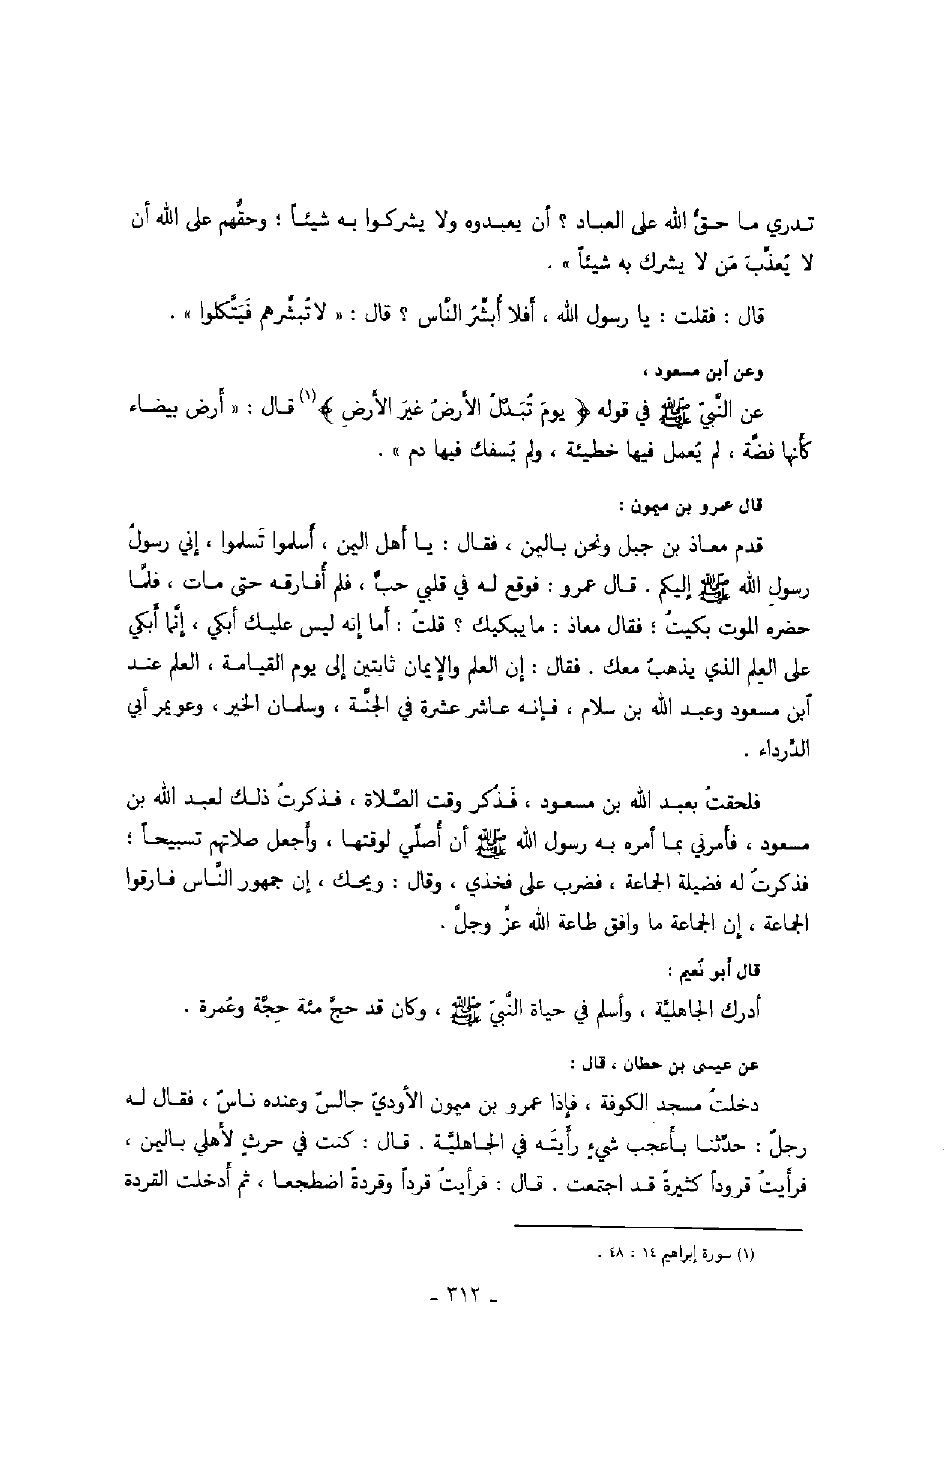 تدري ما حقُّ الله على العباد ؟ أن يعبدوه ولا يشركوا به شيئاً ؛ وحقُّهم على الله أن
لا يُعذِّبَ مَن لا يشرك به شيئاً » .
قال : فقلت : يا رسول الله ، أفلا أُبشِّرُ النَّاس ؟ قال : « لاتُبشِّرهم فَيَتَّكلوا » .
وعن أبن مسعود ،
عن النَّبيّ ﷺ في قوله ﴿ يومَ تُبَدَّلُ الأرضُ غيرَ الأرضِ ﴾(١) قال : « أرض بيضاء
كأنها فضَّة ، لم يُعمل فيها خطيئة ، ولم يُسفك فيها دم » .
قال عمرو بن ميمون :
قدم معاذ بن جبل ونحن باليمن ، فقال : يا أهل اليمن ، أسلموا تَسلموا ، إني رسولُ
رسولِ الله ﷺ إليكم . قال عمرو : فوقع له في قلبي حبٌّ ، فلم أُفارقه حتى مات ، فلمَّا
حضره الموت بكيتُ ؛ فقال معاذ : مايبكيك ؟ قلتُ : أما إنه ليس عليك أبكي ، إنَّما أبكي
على العِلم الذي يذهبُ معك . فقال : إن العلم والإيمان ثابتين إلى يوم القيامة ، العلم عند
أبن مسعود وعبد الله بن سلام ، فإنه عاشر عشرة في الجنَّة ، وسلمان الخير ، وعويمر أبي
الدَّرداء .
فلحقتُ بعبد الله بن مسعود ، فَذُكر وقت الصَّلاة ، فذكرتُ ذلك لعبد الله بن
مسعود ، فأمرني بما أمره به رسول الله ﷺ أن أُصلِّي لوقتها ، وأجعل صلاتهم تسبيحاً ؛
فذكرتُ له فضيلة الجماعة ، فضرب على فخذي ، وقال : ويحك ، إن جمهور النَّاس فارقوا
الجماعة ، إن الجماعة ما وافق طاعة الله عزَّ وجلَّ .
قال أبو نُعيم :
أدرك الجاهليَّة ، وأسلم في حياة النَّبيّ ﷺ ، وكان قد حجَّ مئة حِجَّة وعُمرة .
عن عيسى بن حطان ، قال :
دخلتُ مسجد الكوفة ، فإذا عمرو بن ميمون الأوديّ جالسٌ وعنده ناسٌ ، فقال له
رجلٌ : حدِّثنا بأعجب شيءٍ رأيتَه في الجاهليَّة . قال : كنت في حرثٍ لأهلي باليمن ،
فرأيتُ قروداً كثيرةً قد اجتمعت . قال : فرأيتُ قرداً وقردةً اضطجعا ، ثم أدخلت القردة
(١) سورة إبراهيم ١٤ : ٤٨ .
- ٣١٢ -